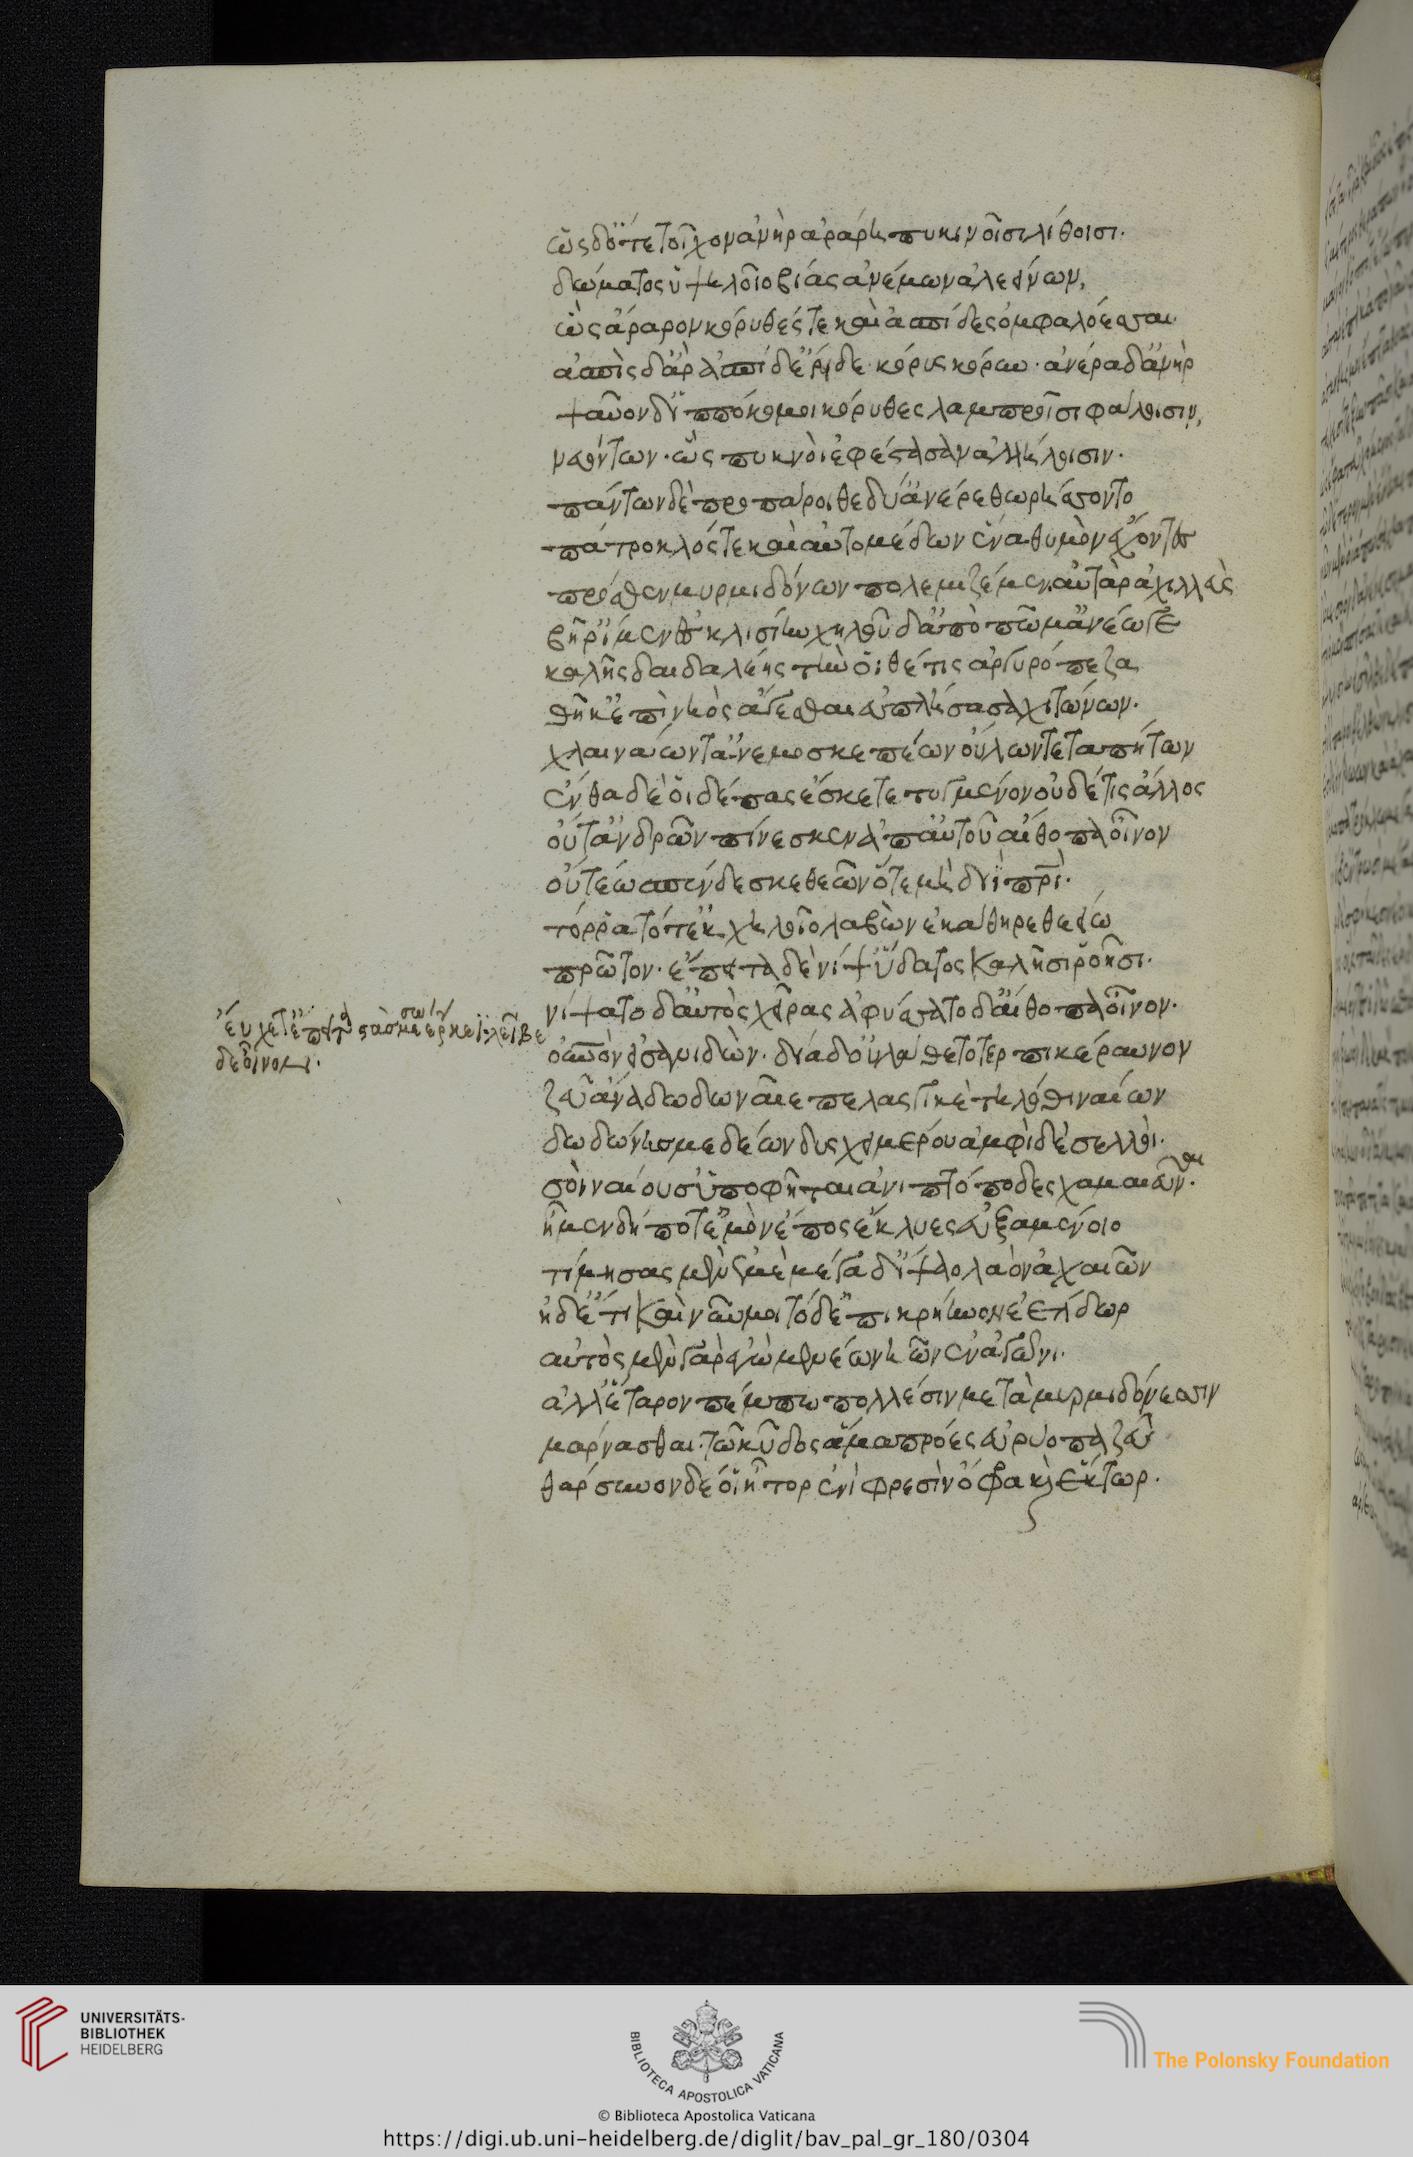 ὡς δ' ὅτε τοῖχον ἀνὴρ ἀράρῃ πυκινοῖσι λίθοισι.
δώματος ὑψηλοῖο βίας ἀνέμων ἀλεείνων,
ὣς ἄραρον κόρυθές τε καὶ ἀσπίδες ὀμφαλόεσσαι
ἀσπὶς δ' ἄρ' ἀσπίδ' ἔρειδε κόρυς κόρυν · ἀνέρα δ' ἀνὴρ
ψαῦον δ' ἱππόκομοι κόρυθες λαμπροῖσι φάλοισιν,
νευόντων · ὣς πυκνοὶ ἐφέστασαν ἀλλήλοισιν ·
πάντων δὲ προπάροιθε δύ' ἀνέρε θωρήσσοντο
πάτροκλός τε καὶ αὐτομέδων ἕνα θυμὸν ἔχοντες
πρόσθεν μυρμιδόνων πολεμιζέμεν αὐτὰρ ἀχιλλεὺς
βῆ ῥ' ἴμεν ἐς κλισίην χηλοῦ δ' ἀπὸ πῶμ' ἀνέῳγε
καλῆς δαιδαλέης τὴν οἱ θέτις ἀργυρόπεζα
θῆκ' ἐπὶ νηὸς ἄγεσθαι εὖ πλήσασα χιτώνων ·
χλαινάων τ' ἀνεμοσκεπέων οὔλων τε ταπήτων
ἔνθα δέ οἱ δέπας ἔσκε τετυγμένον οὐδέ τις ἄλλος
οὔτ' ἀνδρῶν πίνεσκεν ἀπ' αὐτοῦ αἴθοπα οἶνον
οὔτέῳ σπένδεσκε θεῶν ὅτε μὴ διῒ πρὶ ·
τόρρα τότ' ἐκ χηλοῖο λαβὼν ἐκάθηρε θεείῳ
πρῶτον · ἔπειτα δὲ νίψ' ὕδατος καλῆσι ῥοῆσι ·
νίψατο δ' αὐτὸς χεῖρας ἀφύσσατο δ' αἴθοπα οἶνον ·
εὔχετ' ἔπειτα στὰς μέσῳ ἕρκεϊ · λεῖβε
δὲ οἶνον ·
οὐρανὸν εἰσανιδὼν · δία δ' οὐ λάθε τερπικέραυνον
ζεῦ ἄνα δωδωναῖε πελασγικὲ τηλόθι ναίων
δωδώνης μεδέων δυσχειμέρου ἀμφὶ δὲ σελλοὶ ·
σοὶ ναίουσ' ὑποφῆται ἀνιπτόποδες χαμαιεῦναι ·
ἠμὲν δή ποτ' ἐμὸν ἔπος ἔκλυες εὐξαμένοιο
τίμησας μὲν ἐμὲ μέγα δ' ἴψαο λαὸν ἀχαιῶν
ἠδ' ἔτι καὶ νῦν μοι τόδ' ἐπικρήηνον ἐέλδωρ
αὐτὸς μὲν γὰρ ἐγὼ μενέω νηῶν ἐν ἀγῶνι ·
ἀλλ' ἕταρον πέμπω πολλέσιν μετὰ μυρμιδόνεσσιν
μάρνασθαι · τῶ κῦδος ἅμα πρόες εὐρύοπα ζεῦ
θάρσυνον δέ οἱ ἦτορ ἐνὶ φρεσὶν ὄφρα καὶ ἕκτωρ ·
UNIVERSITÄTS-
BIBLIOTHEK
HEIDELBERG
BIBLIOTECA APOSTOLICA VATICANA
The Polonsky Foundation
© Biblioteca Apostolica Vaticana
https://digi.ub.uni-heidelberg.de/diglit/bav_pal_gr_180/0304